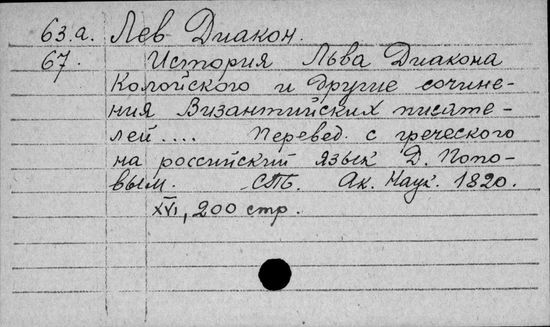 63.а. Лев Диакон.
67. История Льва Диакона
Колойского и другие сочине-
ния Византийских писате-
лей.... Перевед. с греческого
на российский язык Д. Попо-
вым. СПб. Ак. Наук. 1820.
XVI, 200 стр.